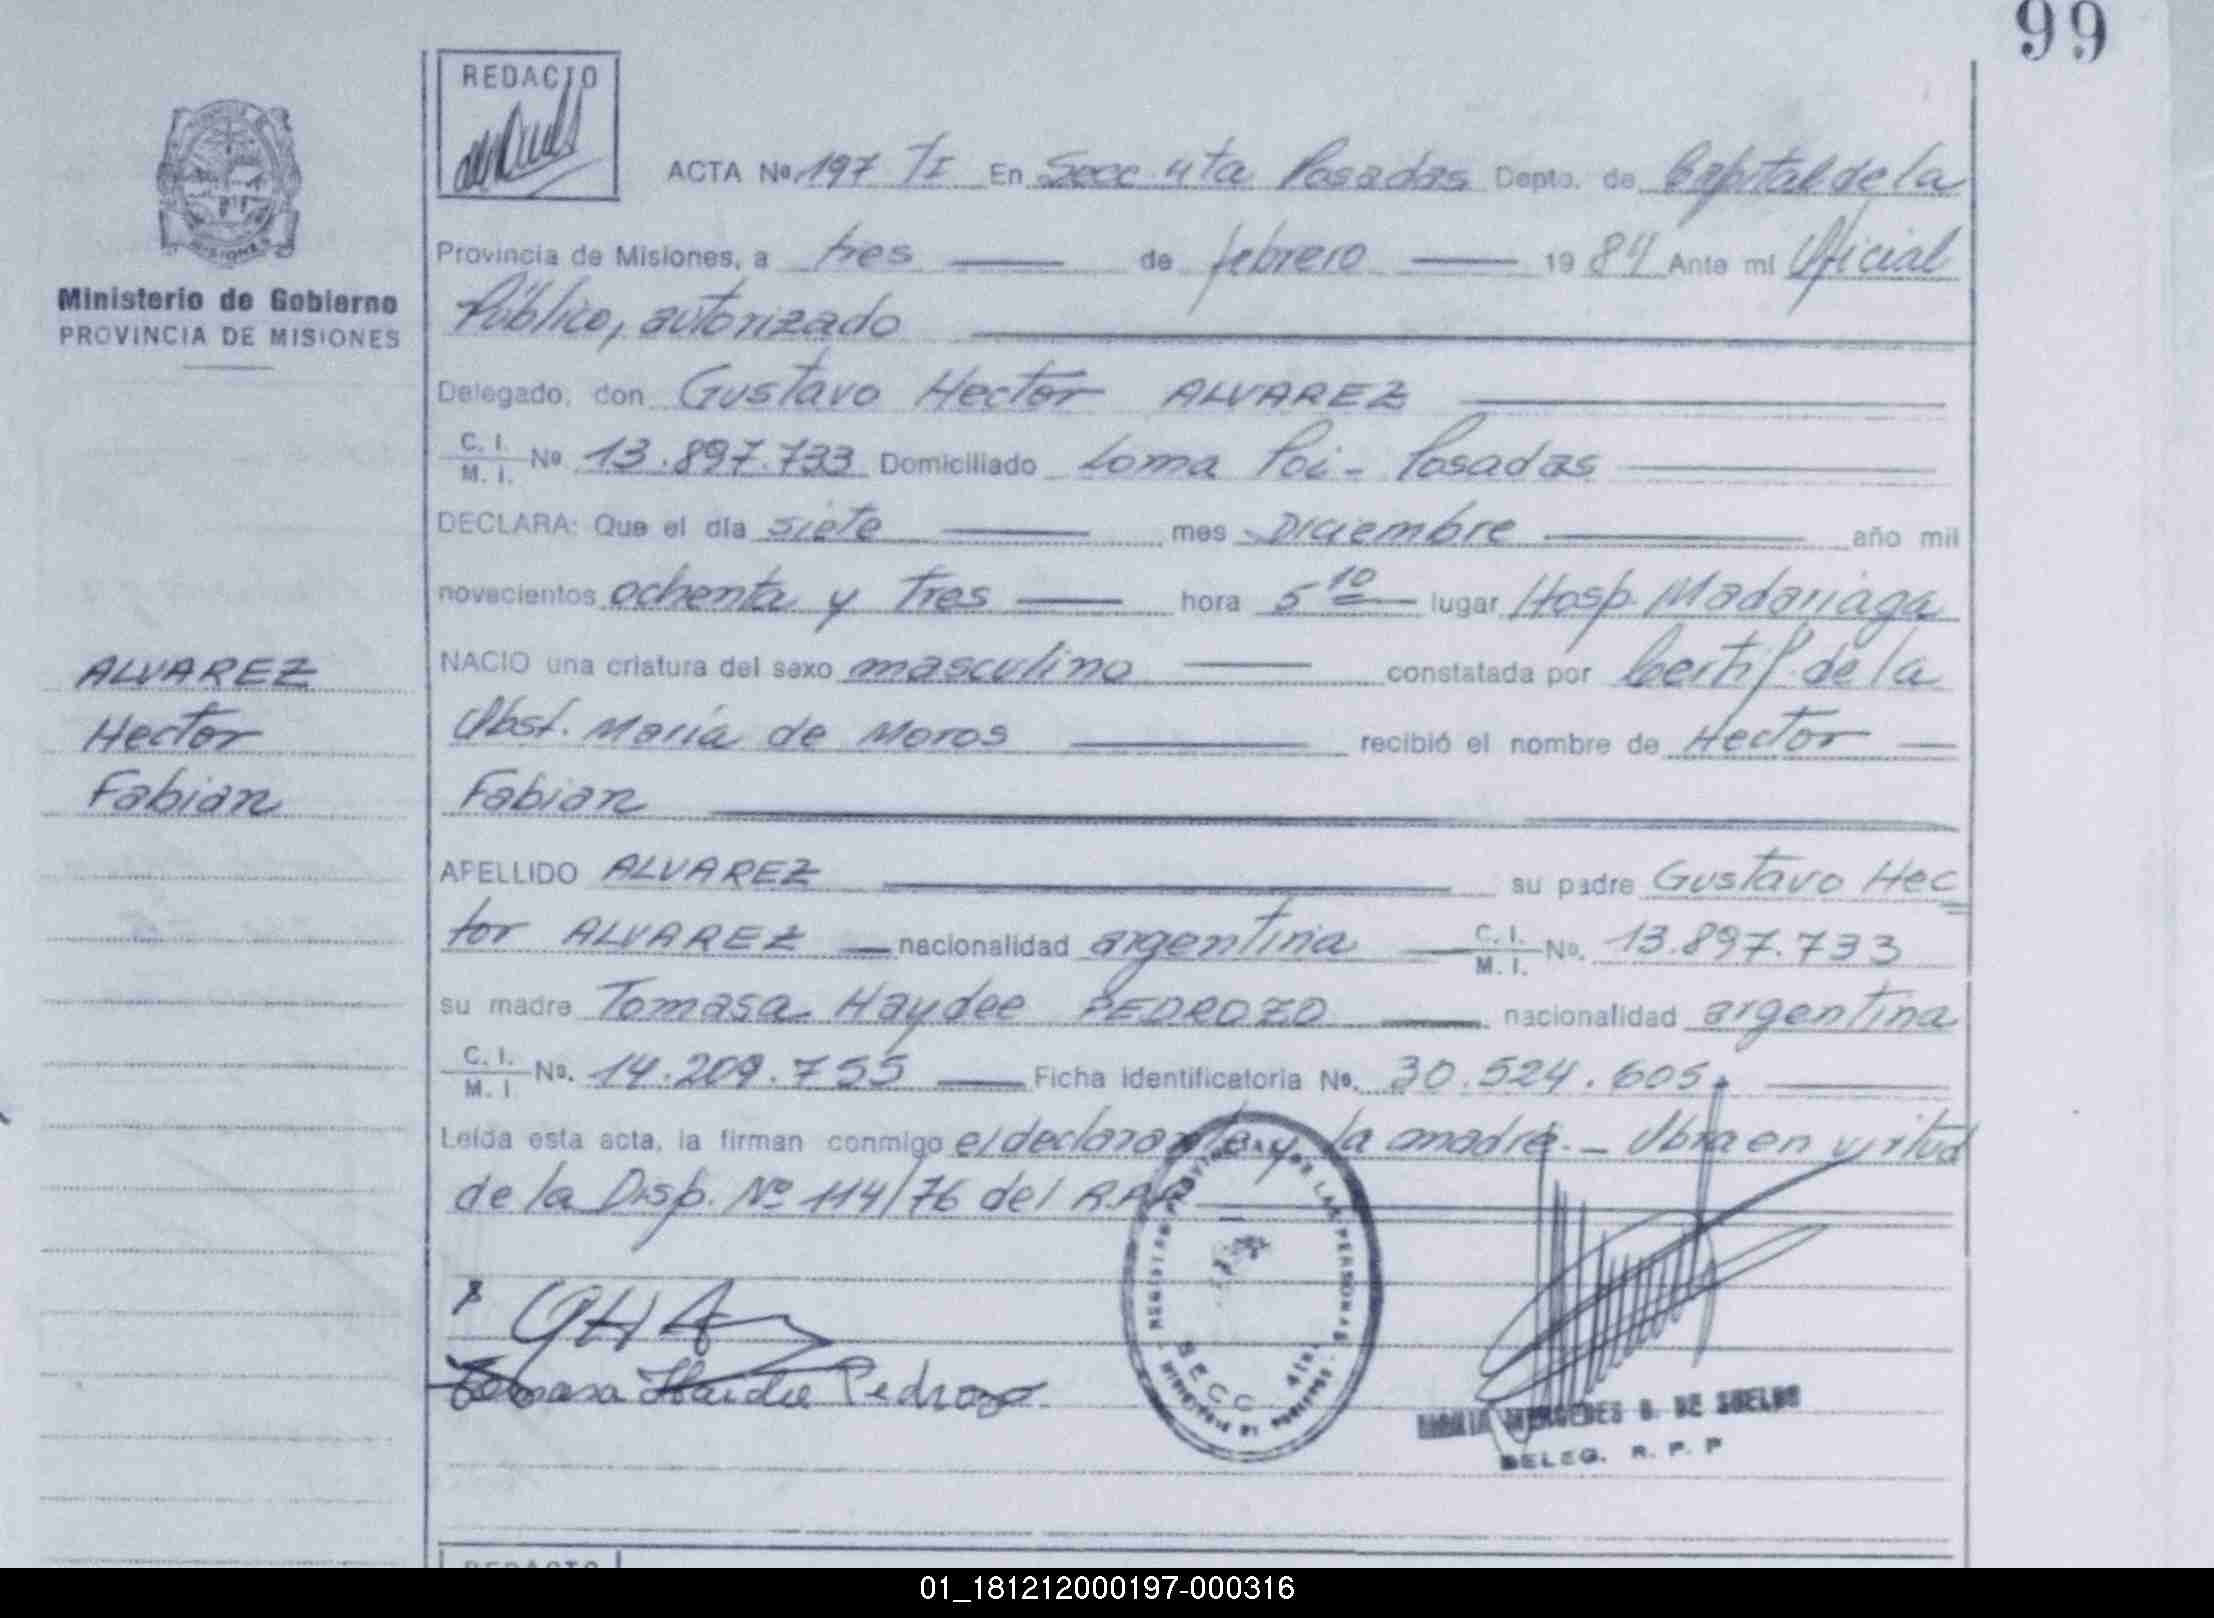 99
REDACTO
ACTA Nº 197 TI En Secc 4ta Posadas Depto. de Capital de la
Ministerio de Gobierno
PROVINCIA DE MISIONES
Provincia de Misiones, a tres de febrero 1984 Ante mi Oficial
Público, autorizado
Delegado, don Gustavo Hector ALVAREZ
C. I.
M. I. Nº 13.897.733 Domiciliado Loma Poi - Posadas
DECLARA: Que el día siete mes Diciembre año mil
novecientos ochenta y tres hora 5 10 lugar Hosp. Madariaga
ALVAREZ
Hector
Fabian
NACIO una criatura del sexo masculino constatada por Certif. de la
Obst. Maria de Moros recibió el nombre de Hector
Fabian
APELLIDO ALVAREZ su padre Gustavo Hec
tor ALVAREZ nacionalidad argentina C. I.
M. I. Nº. 13.897.733
su madre Tomasa Haydee PEDROZO nacionalidad argentina
C. I.
M. I Nº. 14.209.755 Ficha identificatoria Nº. 30.524.605.
Leída esta acta, la firman conmigo el declarante y la madre. - Obra en virtud
de la Disp. Nº 114/76 del R.P.P.
GHA
Tomasa Haidee Pedrozo
REGISTRO PROVINCIAL DE LAS PERSONAS
SECC 4ta
MERCEDES G. DE SUELDO
DELEG. R. P. P
REDACTO
01_181212000197-000316